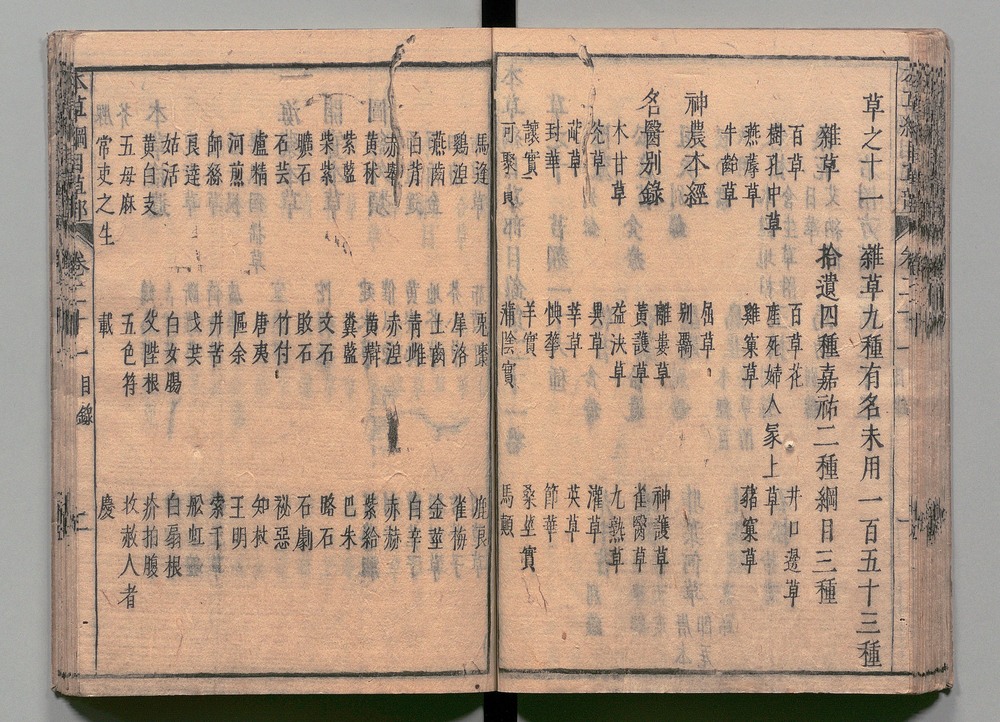 草之十一　雜草九種有名未用一百五十三種
雜草　拾遺四種嘉祐二種綱目三種
百草　百草花　井口邊草
樹孔中草　產死婦人冢上草
燕蓐草　雞窠草　豬窠草
牛齝草
神農本經
屈草　別羈
名醫別錄
離婁草　神護草
黃護草　雀醫草
木甘草　益決草　九熟草
兌草　異草　灌草
𦯶草　莘草　英草
封華　腆華　節華
讓實　羊實　桑莖實
可聚實　蒲陰實　馬顛
馬逢　兔棗　鹿良
雞涅　犀洛　雀梅
燕齒　土齒　金莖
白背　青雌　白辛
赤舉　赤涅　赤赫
黃秫　黃辯　紫給
紫藍　糞藍　巴朱
柴紫　文石　略石
曠石　敗石　石劇
石芸　竹付　祕惡
盧精　唐夷　知杖
河煎　區余　王明
師系　并苦　索干
良達　弋共　船虹
姑活　白女腸　白扇根
黃白支　父陛根　疥拍腹
五母麻　五色符　救赦人者
常吏之生　載　慶
本草綱目草部　卷二十一　目錄　二